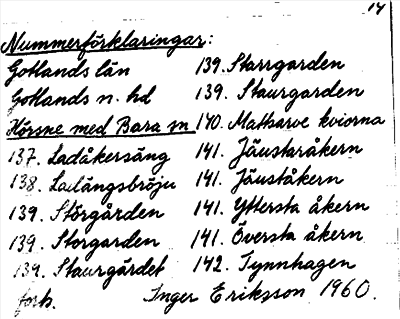 14
Nummerförklaringar:
Gotlands län
Gotlands n. hd
Hörsne med Bara sn
137. Ladåkersäng
138. Lailängsbröju
139. Störgården
139. Storgarden
139. Staurgárdet
forts.
139. Starrgarden
139. Staurgarden
140. Matharve kviorna
141. Jäustaråkern
141. Jäuståkern
141. Yttersta åkern
141. Översta åkern
142. Tynnhagen
Inger Eriksson 1960.